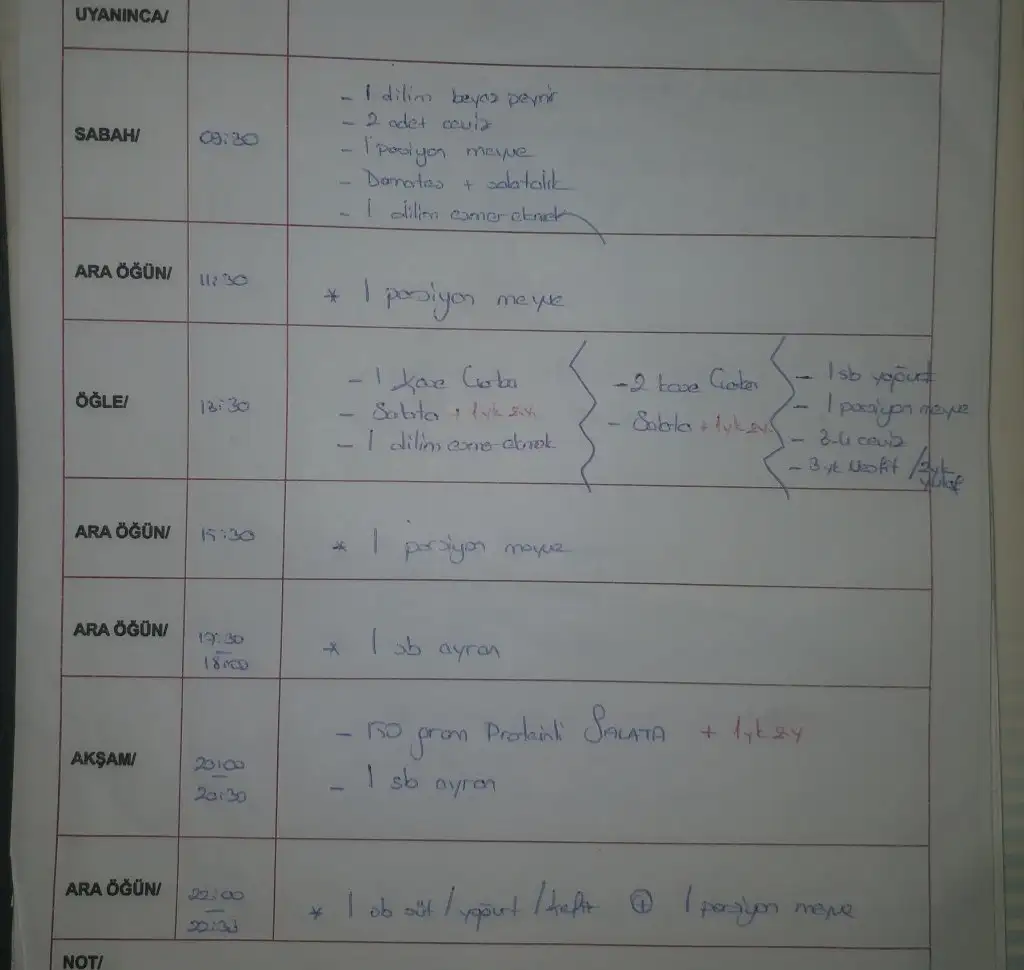 UYANINCA/
SABAH/
09:30
- 1 dilim beyaz peynir
- 2 adet ceviz
- 1 porsiyon meyve
- Domates + salatalık
- 1 dilim esmer ekmek
ARA ÖĞÜN/
11:30
* 1 porsiyon meyve
ÖĞLE/
13:30
- 1 kase Çorba
- Salata + 1 yk zy.
- 1 dilim esmer ekmek
- 2 kase Çorba
- Salata + 1 yk zy.
- 1 sb yoğurt
- 1 porsiyon meyve
- 3-4 ceviz
- 3 yk Nesfit / 3 yk yulaf
ARA ÖĞÜN/
15:30
* 1 porsiyon meyve
ARA ÖĞÜN/
17:30
18:00
* 1 sb ayran
AKŞAM/
20:00
20:30
- 150 gram Proteinli SALATA + 1 yk zy
- 1 sb ayran
ARA ÖĞÜN/
22:00
22:30
* 1 sb süt / yoğurt / kefir ⊕ 1 porsiyon meyve
NOT/